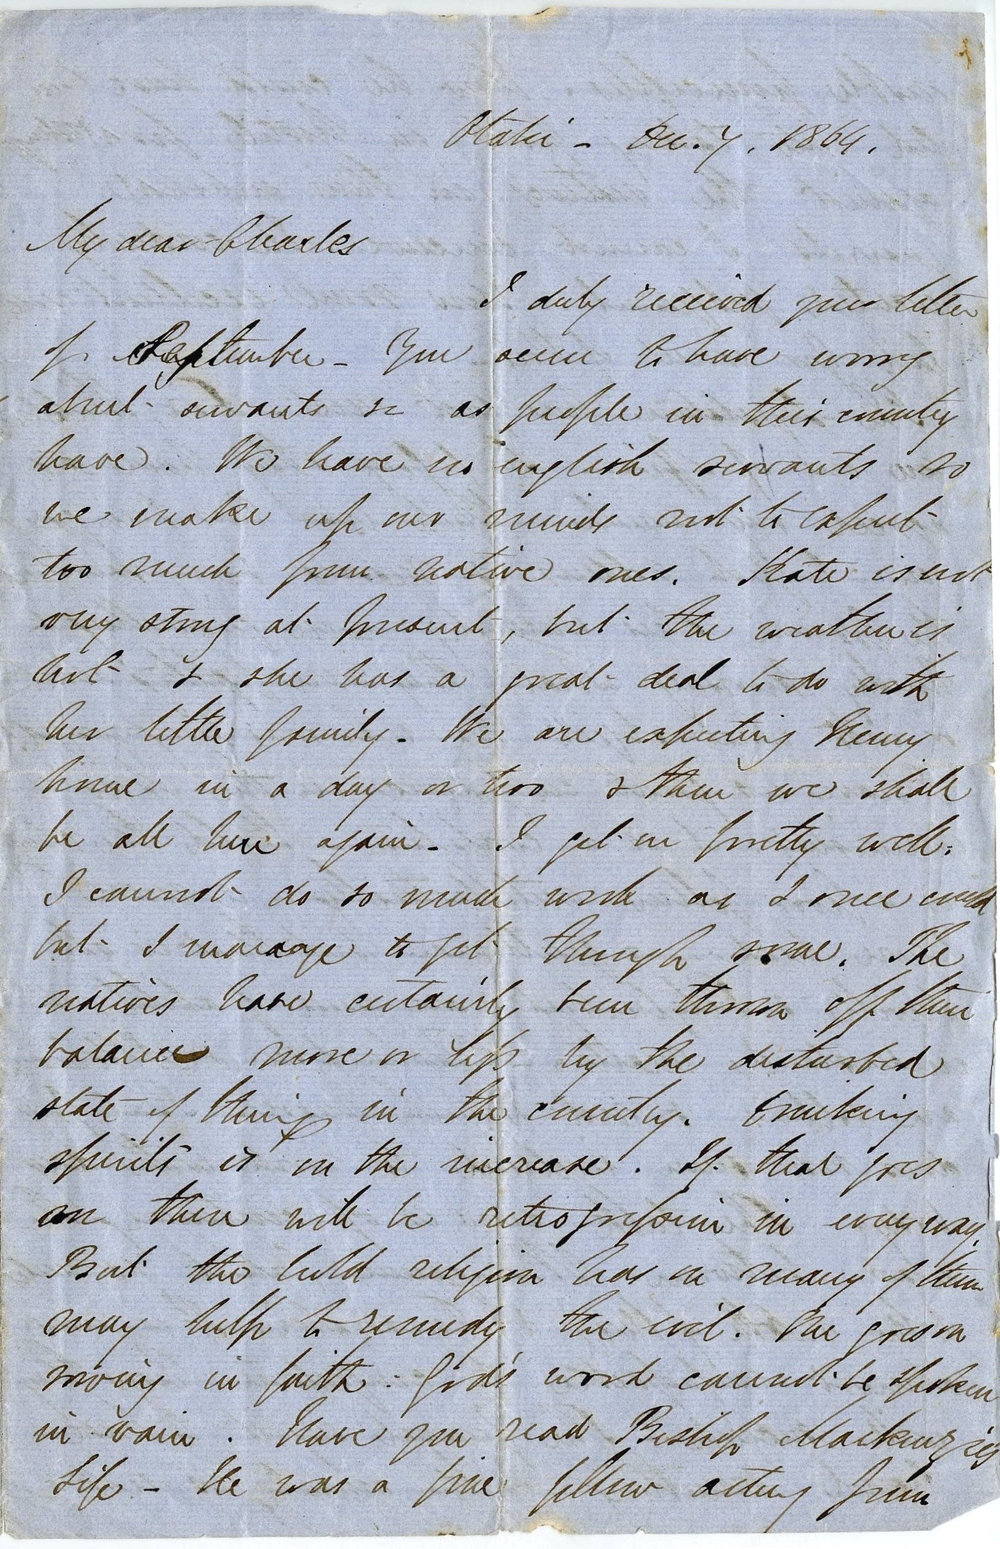 Otaki - Dec. 7. 1864.
My dear Charles
I duly received your letter
of September - You seem to have worry
about servants &c as people in this country
have. We have no english servants so
we make up our minds not to expect
too much from native ones. Kate is not
very strong at present, but the weather is
hot & she has a great deal to do with
her little family - We are expecting Henry
home in a day or two & then we shall
be all here again - I get on pretty well.
I cannot do so much work as I once could
but I manage to get through some. The
natives have certainly been thrown off their
balance more or less by the disturbed
state of things in the country. Drinking
spirits is on the increase. If that goes
on there will be retrogression in every way.
But the hold religion has on many of them
may help to remedy the evil. One goes on
sowing in faith: God's word cannot be spoken
in vain. Have you read Bishop Mackenzies
Life - He was a fine fellow acting from